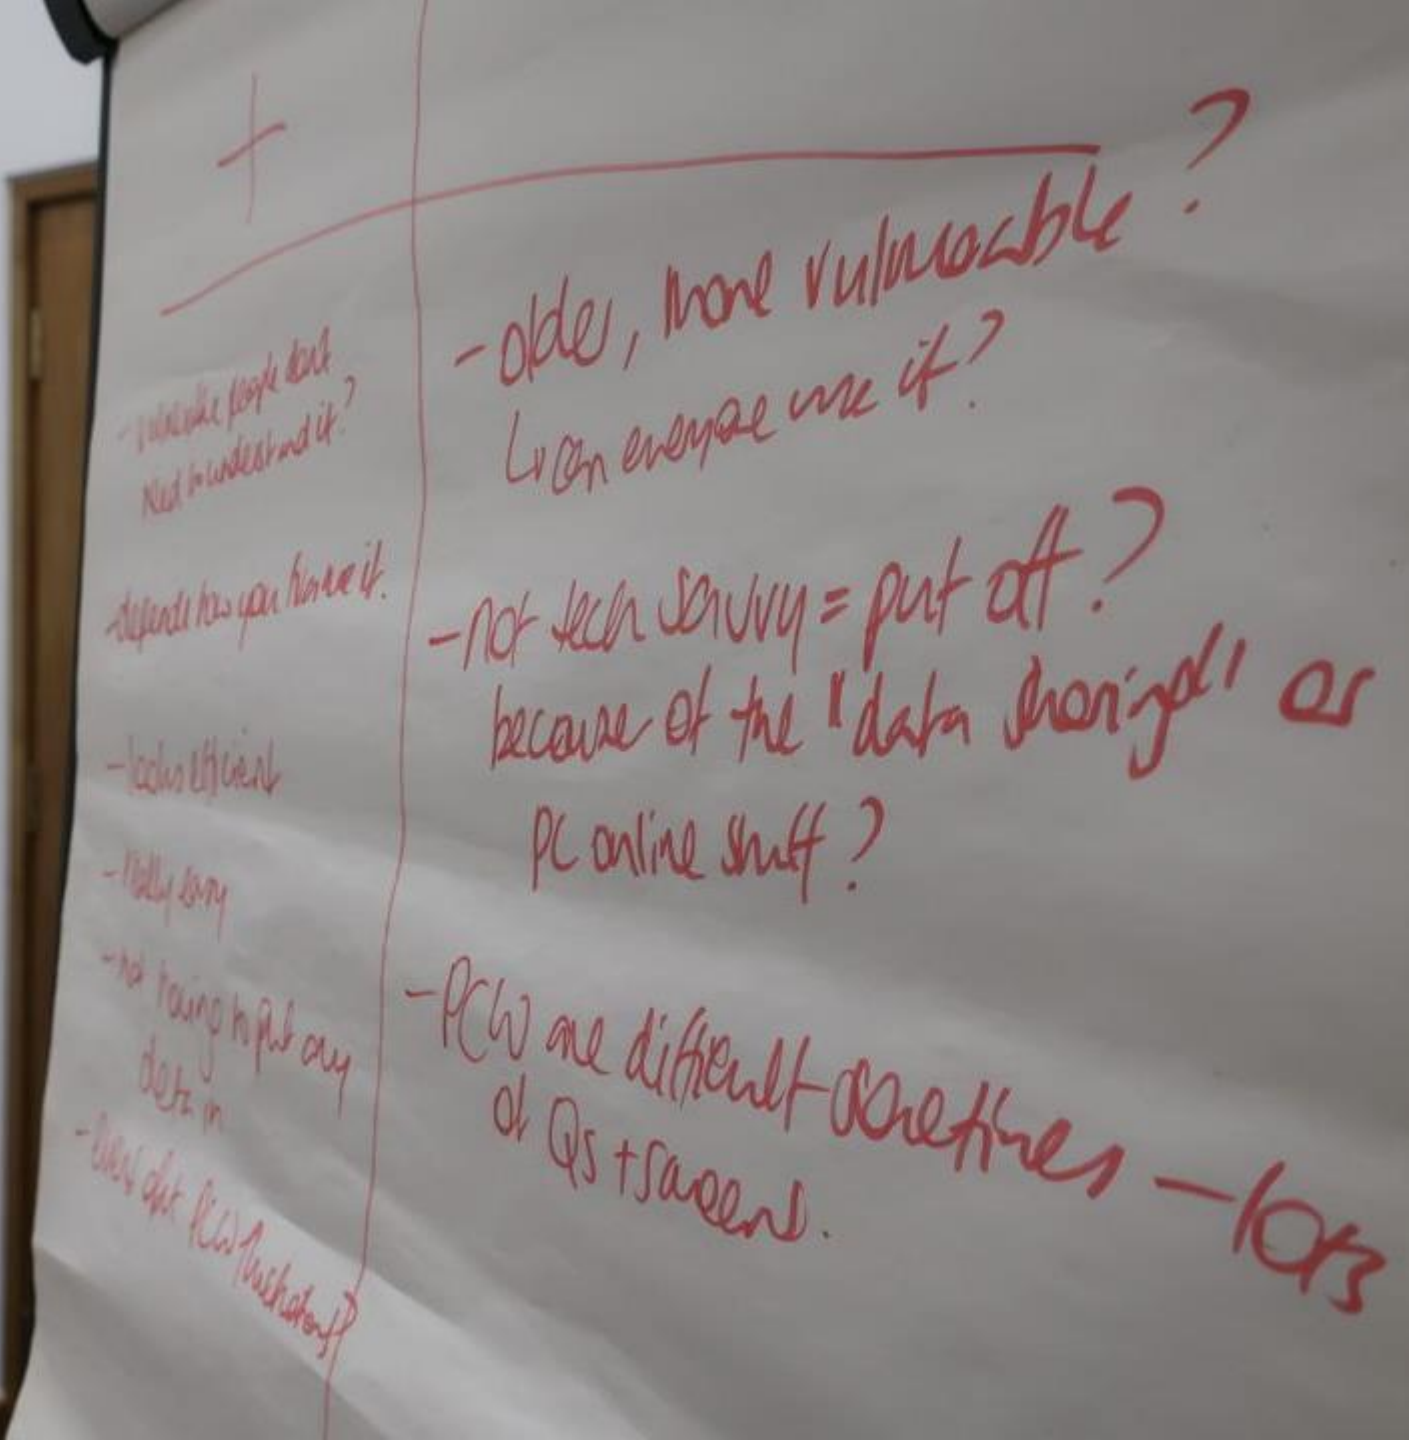 +
- vulnerable people dont
need to understand it?
- depends how you frame it.
- looks efficient
- really easy
- not having to put any
data in
- PCW frustrations?
- older, more vulnerable?
↳ can everyone use it?
- not tech savvy = put off?
because of the "data sharing" or
PC online stuff?
- PCW are difficult sometimes - lots
of Qs + screens.